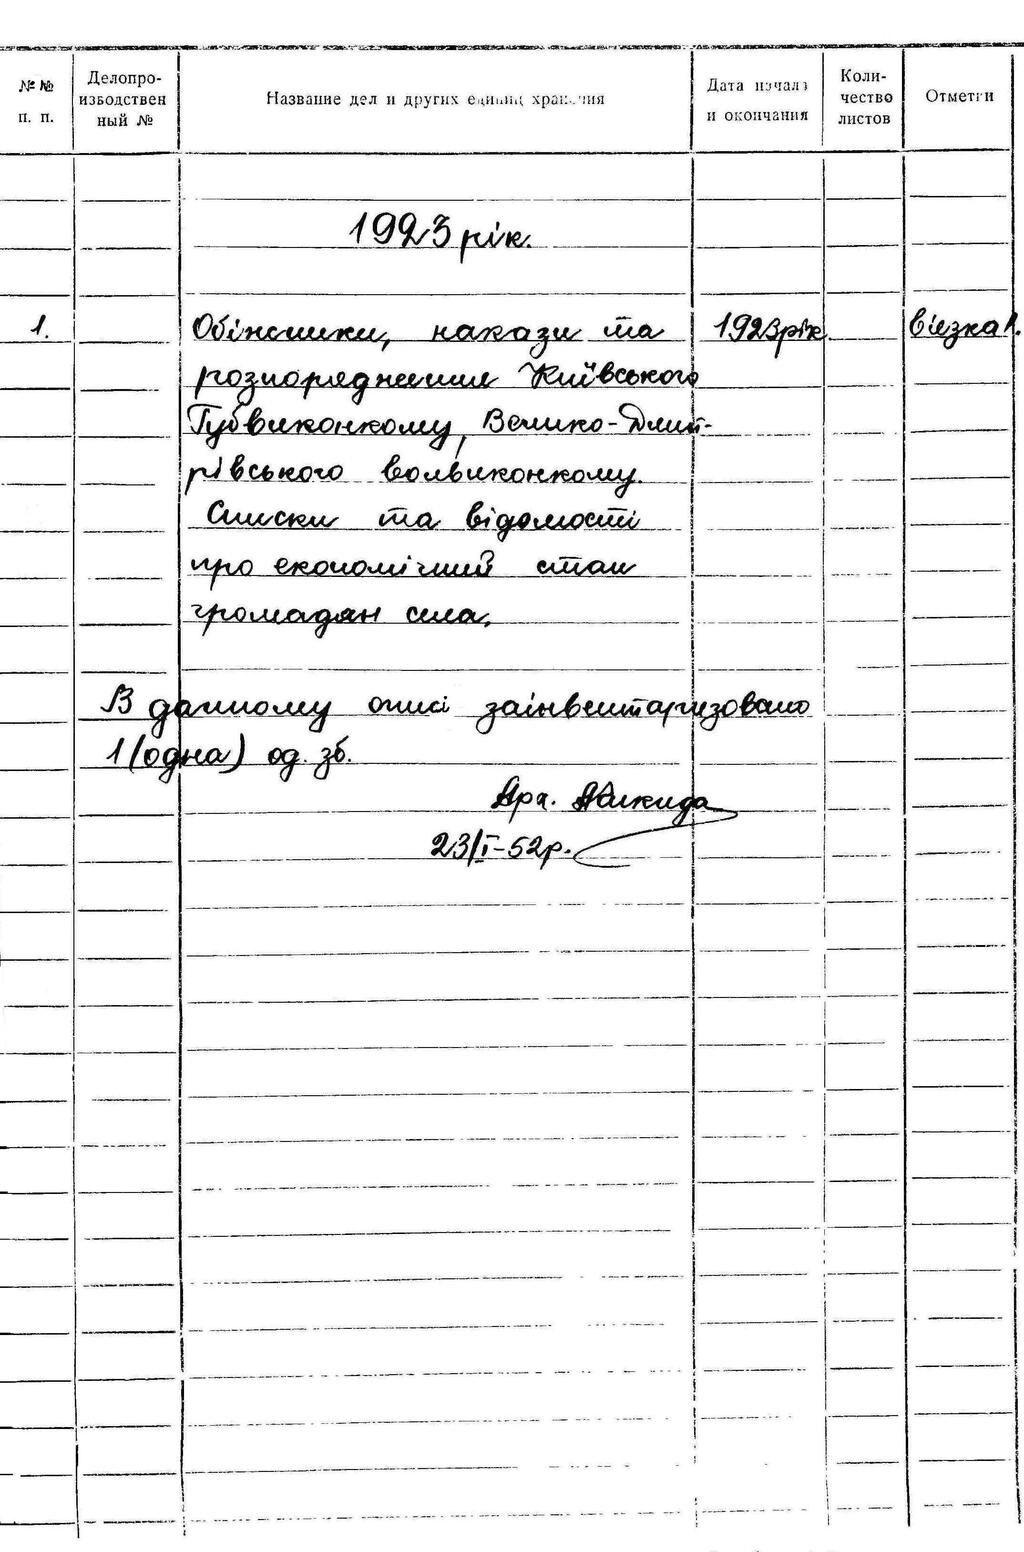 №№ п. п.
Делопро-
изводствен
ный №
Название дел и других единиц хранения
Дата начала
и окончания
Коли-
чество
листов
Отметки
1923 рік.
1. Обіжники, накази та 1923 рік. в'язка 1.
розпорядження Київського
Губвиконкому, Велико-Дмит-
рівського волвиконкому.
Списки та відомості
про економічний стан
громадян села.
В данному описі заінвентаризовано
1 (одна) од. зб.
Арх.
23/I-52р.